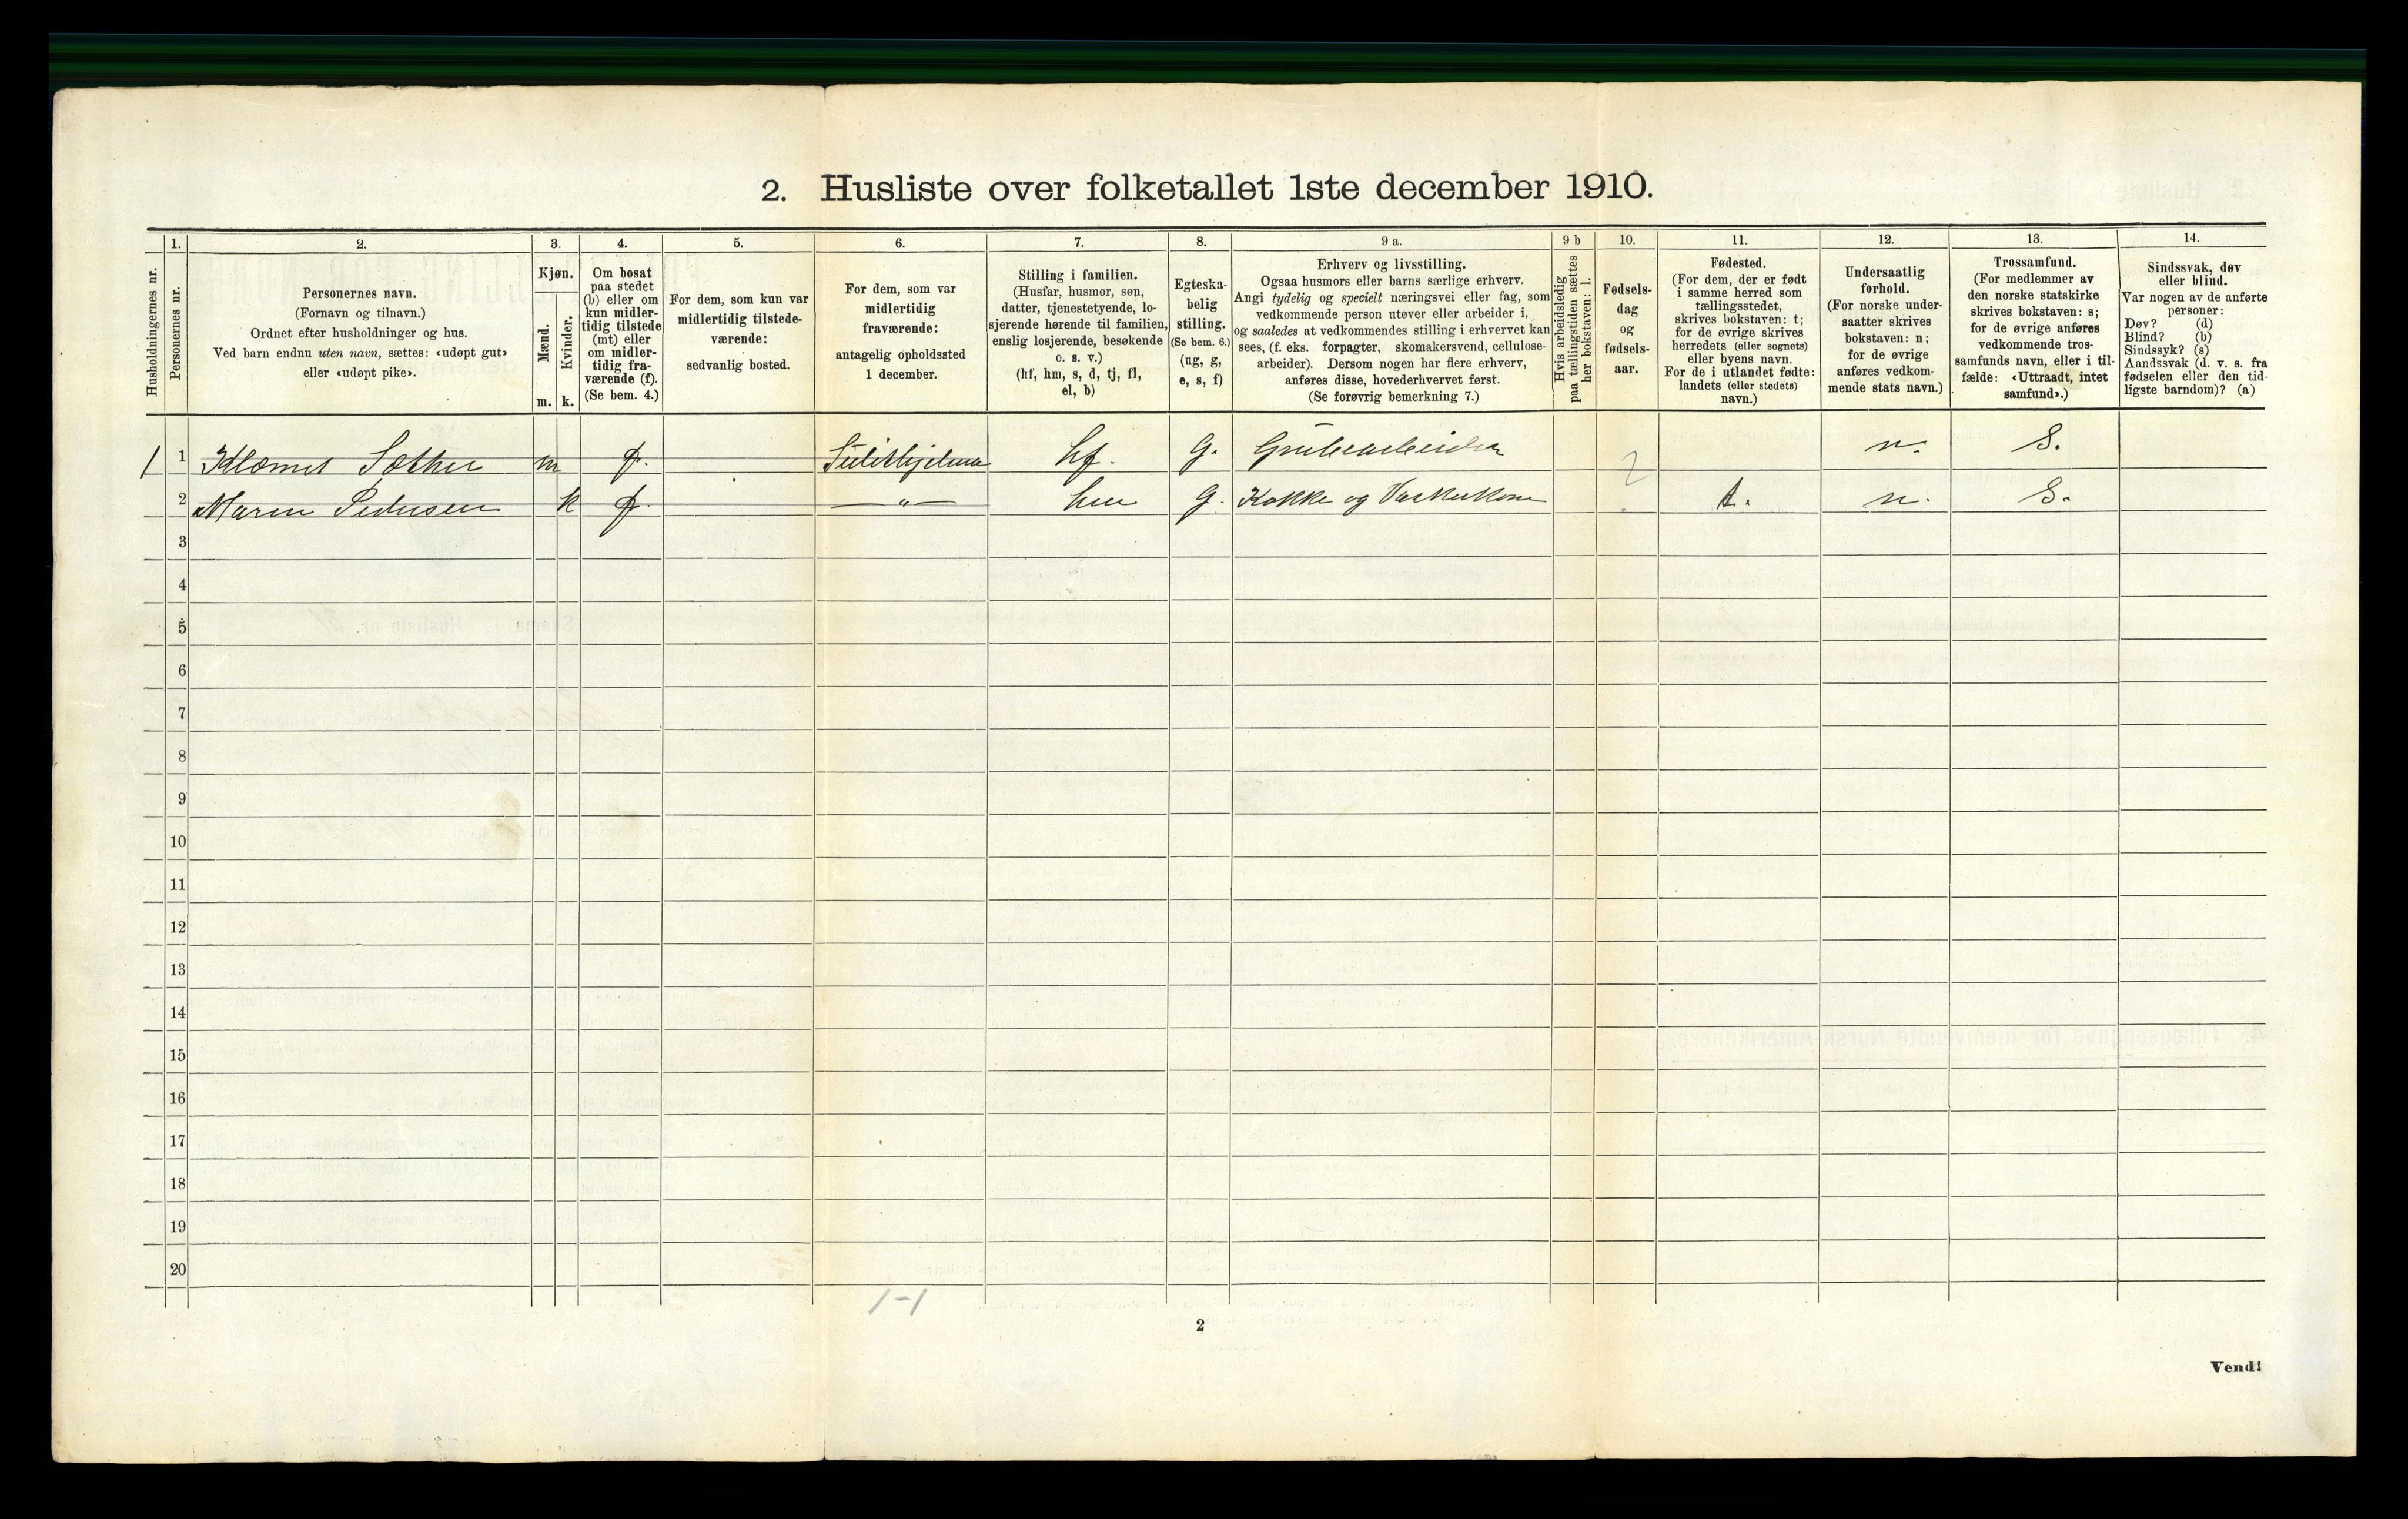 2. Husliste over folketallet 1ste december 1910.
Husholdningernes nr.
1.
Personernes nr.
2.
Personernes navn.
(Fornavn og tilnavn.)
Ordnet efter husholdninger og hus.
Ved barn endnu uten navn, sættes: «udøpt gut»
eller «udøpt pike».
3.
Kjøn.
Mænd.
Kvinder.
m. k.
4.
Om bosat
paa stedet
(b) eller om
kun midler-
tidig tilstede
(mt) eller
om midler-
tidig fra-
værende (f).
(Se bem. 4.)
5.
For dem, som kun var
midlertidig tilstede-
værende:
sedvanlig bosted.
6.
For dem, som var
midlertidig
fraværende:
antagelig opholdssted
1 december.
7.
Stilling i familien.
(Husfar, husmor, søn,
datter, tjenestetyende, lo-
sjerende hørende til familien,
enslig losjerende, besøkende
o. s. v.)
(hf, hm, s, d, tj, fl,
el, b)
8.
Egteska-
belig
stilling.
(Se bem. 6.)
(ug, g,
e, s, f)
9 a.
Erhverv og livsstilling.
Ogsaa husmors eller barns særlige erhverv.
Angi tydelig og specielt næringsvei eller fag, som
vedkommende person utøver eller arbeider i,
og saaledes at vedkommendes stilling i erhvervet kan
sees, (f. eks. forpagter, skomakersvend, cellulose-
arbeider). Dersom nogen har flere erhverv,
anføres disse, hovederhvervet først.
(Se forøvrig bemerkning 7.)
9 b
Hvis arbeidsledig
paa tællingstiden sættes
her bokstaven: l.
10.
Fødsels-
dag
og
fødsels-
aar.
11.
Fødested.
(For dem, der er født
i samme herred som
tællingsstedet,
skrives bokstaven: t;
for de øvrige skrives
herredets (eller sognets)
eller byens navn.
For de i utlandet fødte:
landets (eller stedets)
navn.)
12.
Undersaatlig
forhold.
(For norske under-
saatter skrives
bokstaven: n;
for de øvrige
anføres vedkom-
mende stats navn.)
13.
Trossamfund.
(For medlemmer av
den norske statskirke
skrives bokstaven: s;
for de øvrige anføres
vedkommende tros-
samfunds navn, eller i til-
fælde: «Uttraadt, intet
samfund».)
14.
Sindssvak, døv
eller blind.
Var nogen av de anførte
personer:
Døv? (d)
Blind? (b)
Sindssyk? (s)
Aandssvak (d. v. s. fra
fødselen eller den tid-
ligste barndom)? (a)
1 1 Klemet Sæther m f. Sulithjelma hf. G. Grubearbeider n. S.
2 Maren Pedersen k f. — „ — hm G. Kokke og Vaskekone t. n. S.
2
3
4
5
6
7
8
9
10
11
12
13
14
15
16
17
18
19
20
1-1
2
Vend!